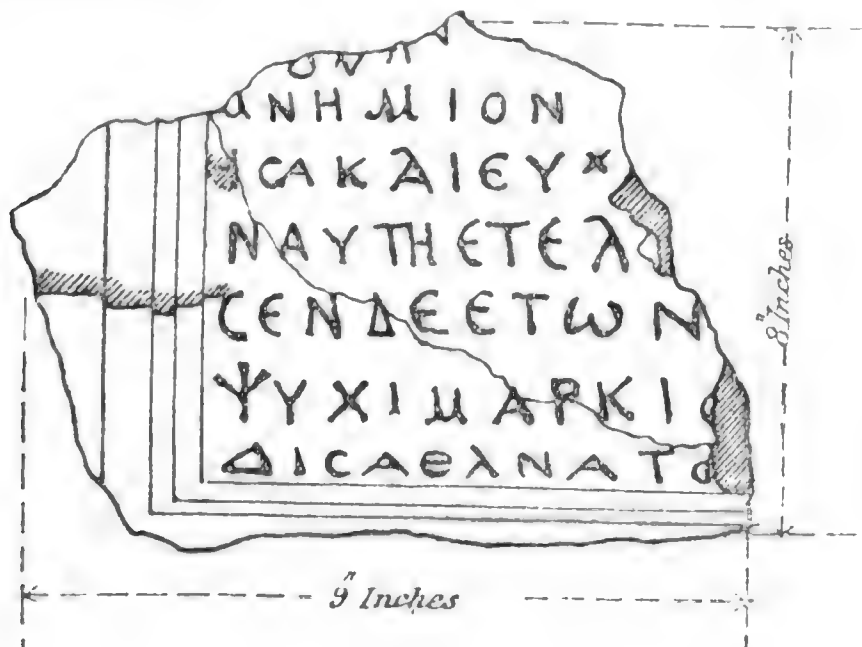 ΑΝΗΜΙΟΝ
ΙCΑΚΑΙΕΥΧ
ΝΑΥΤΗΕΤΕΛ
CΕΝΔΕΕΤΩΝ
ΨΥΧΙΜΑΡΚΙΟ
ΔΙCΑΘΑΝΑΤΟ
8" Inches
9" Inches